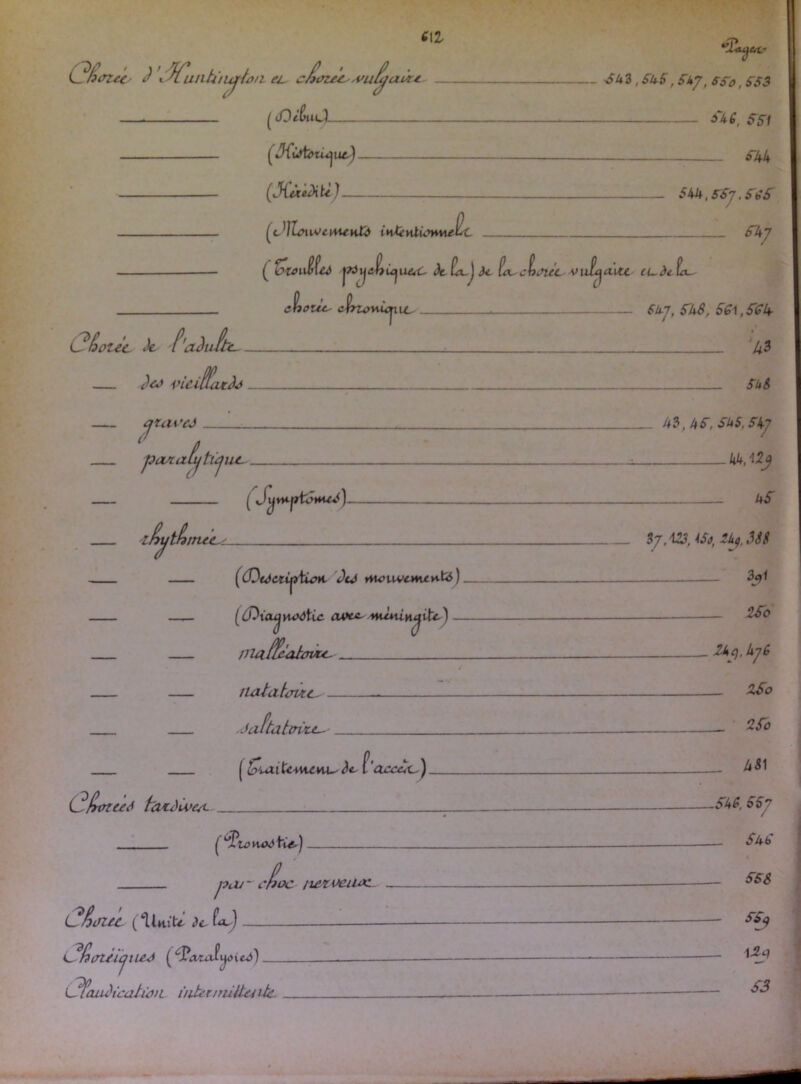 612
Pages
Chorée d'Huntington et chorée vulgaire 543, 545, 547, 550, 553
(Début) 546, 551
(Historique) 544
(Hérédité) 544, 557, 565
(Mouvements intentionnels 547
(Troubles psychiques de la) de la chorée vulgaire et de la
chorée chronique 547, 548, 561, 564
Chorée de l'adulte 43
des vieillards 548
graves 43, 45, 545, 547
paralytique 44, 129
(Symptômes) 45
rhythmée 37, 123, 150, 249, 388
(Description des mouvements) 391
(Diagnostic avec méningite) 250
malléatoire 249, 476
natatoire 250
saltatoire 250
(Traitement de l'accès) 481
Chorées tardives 546, 557
(Pronostic) 546
par choc nerveux 558
Chorée (Unité de la) 559
Choréiques (Paralysies) 129
Claudication intermittente 53